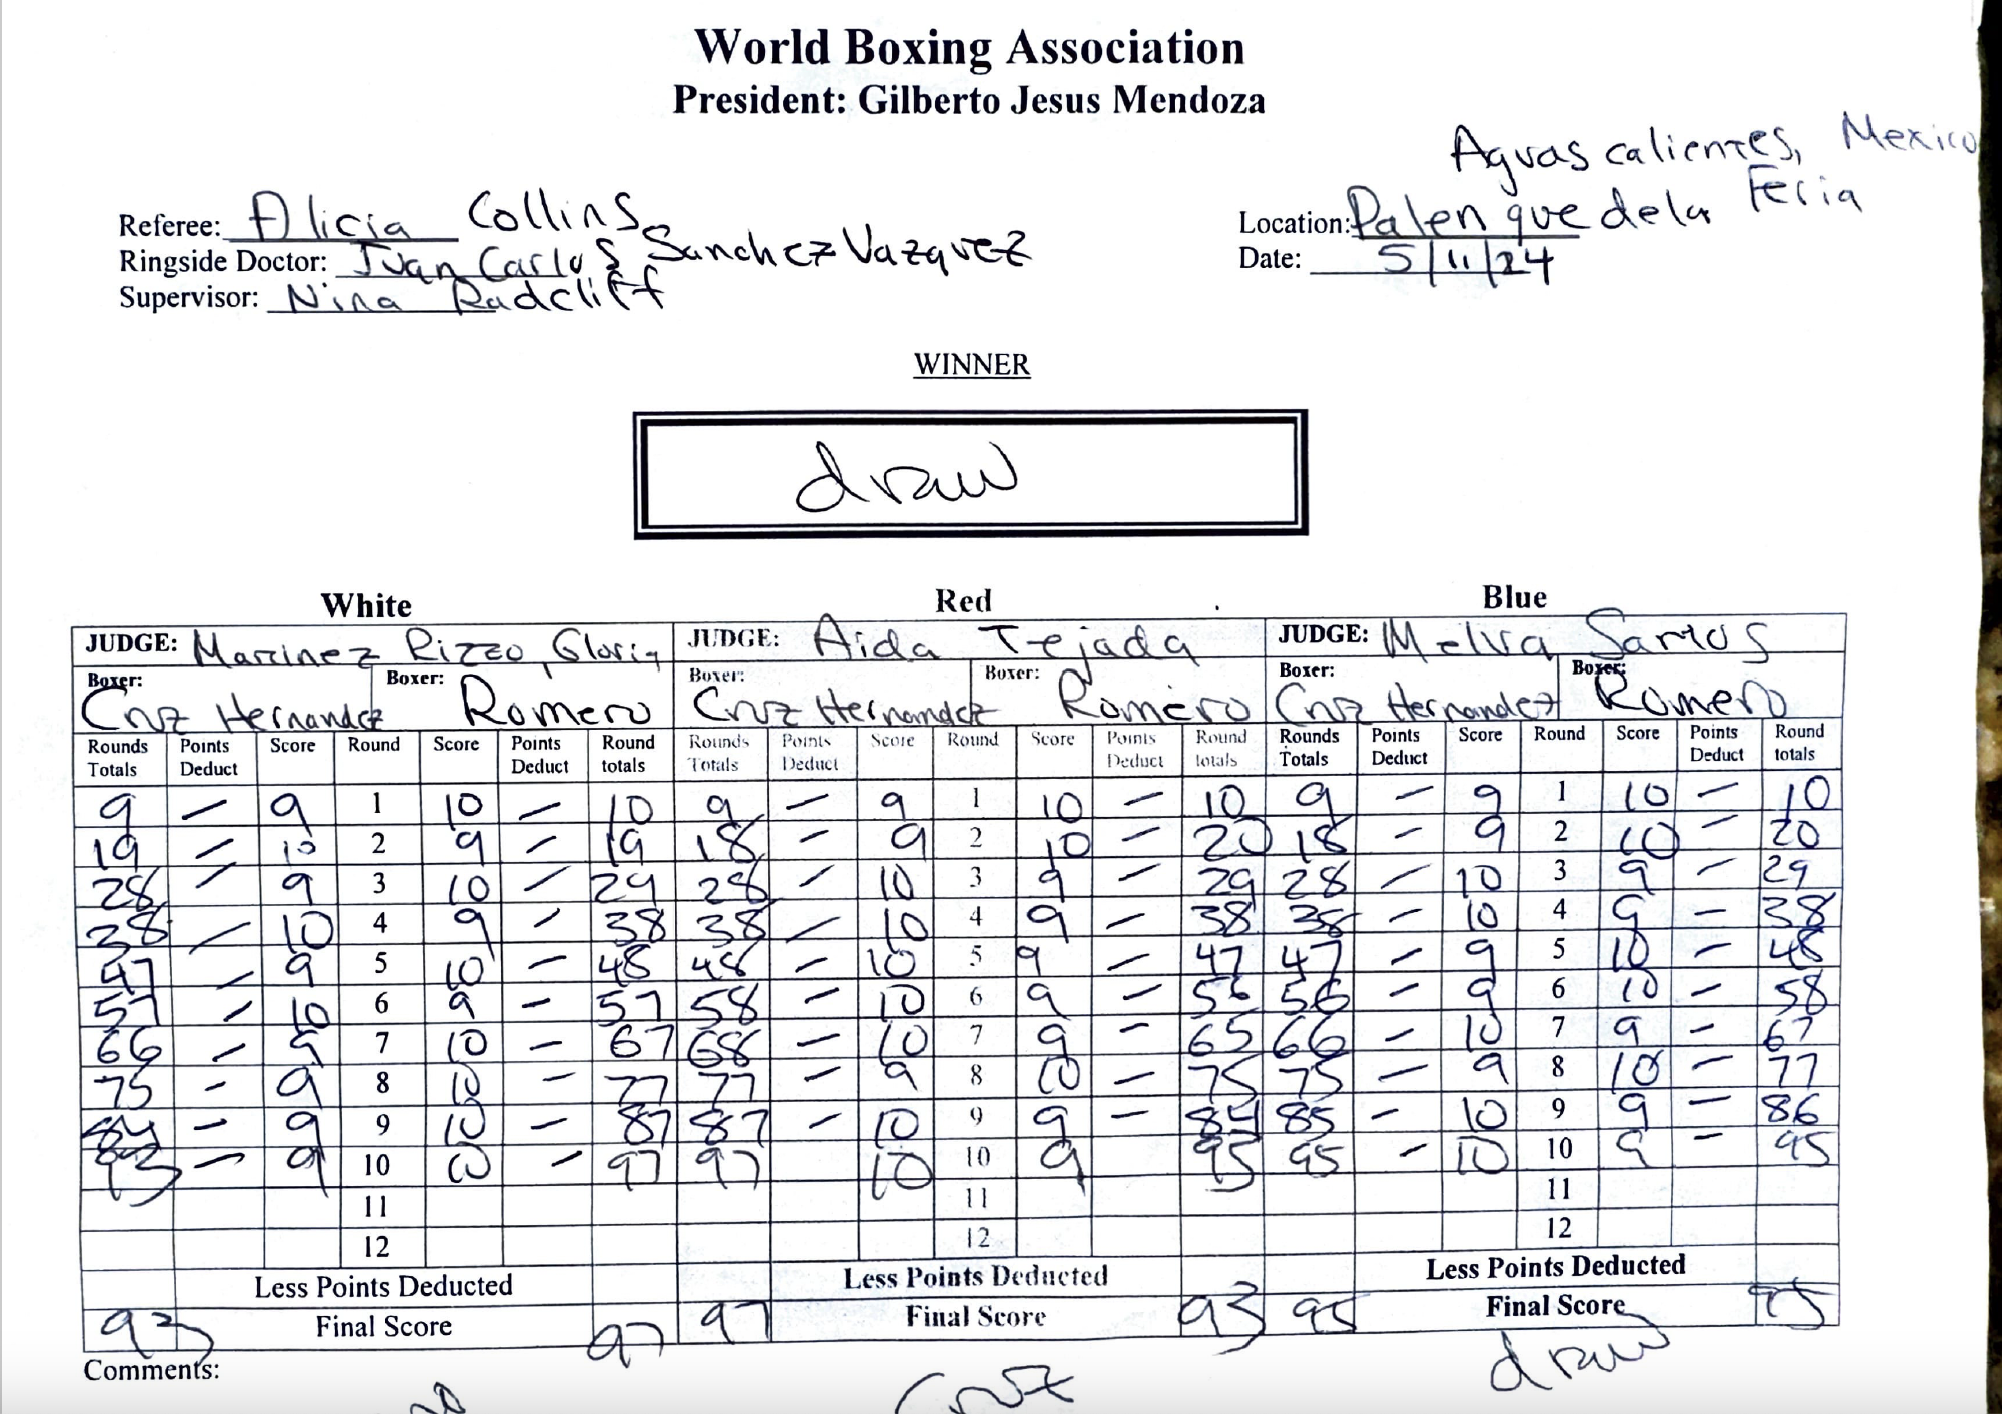 World Boxing Association
President: Gilberto Jesus Mendoza
Aguascalientes, Mexico
Referee: Alicia Collins Location: Palenque dela Feria
Ringside Doctor: Juan Carlos Sanchez Vazquez Date: 5/11/24
Supervisor: Nina Radcliff
WINNER
draw
White Red Blue
JUDGE: Marinez Rizzo, Gloria JUDGE: Aida Tejada JUDGE: Melva Santos
Boxer: Cruz Hernandez Boxer: Romero Boxer: Cruz Hernandez Boxer: Romero Boxer: Cruz Hernandez Boxer: Romero
Rounds Points Score Round Score Points Round Rounds Points Score Round Score Points Round Rounds Points Score Round Score Points Round
Totals Deduct Deduct totals Totals Deduct Deduct totals Totals Deduct Deduct totals
9 – 9 1 10 – 10 9 – 9 1 10 – 10 9 – 9 1 10 – 10
19 – 10 2 9 – 19 18 – 9 2 10 – 20 18 – 9 2 10 – 20
28 – 9 3 10 – 29 28 – 10 3 9 – 29 28 – 10 3 9 – 29
38 – 10 4 9 – 38 38 – 10 4 9 – 38 38 – 10 4 9 – 38
47 – 9 5 10 – 48 48 – 10 5 9 – 47 47 – 9 5 10 – 48
57 – 10 6 9 – 57 58 – 10 6 9 – 56 56 – 9 6 10 – 58
66 – 9 7 10 – 67 68 – 10 7 9 – 65 66 – 10 7 9 – 67
75 – 9 8 10 – 77 77 – 9 8 10 – 75 75 – 9 8 10 – 77
84 – 9 9 10 – 87 87 – 10 9 9 – 84 85 – 10 9 9 – 86
93 – 9 10 10 – 97 97 10 10 9 95 95 – 10 10 9 – 95
11 11 11
12 12 12
Less Points Deducted Less Points Deducted Less Points Deducted
93 Final Score 97 97 Final Score 93 95 Final Score 95
Comments: Cruz draw